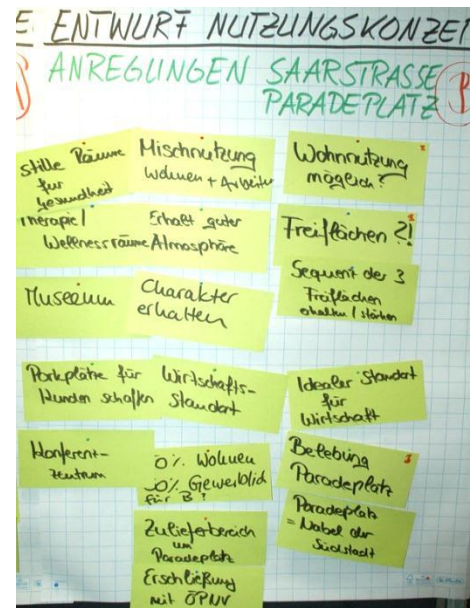 E ENTWURF NUTZUNGSKONZE
ANREGUNGEN SAARSTRASSE
PARADEPLATZ B
stille Räume
für
Gesundheit
Therapie /
Wellnessräume
Museum
Parkplätze für
Kunden schaffen
Konferenz-
zentrum
Mischnutzung
Wohnen + Arbeiten
Erhalt guter
Atmosphäre
Charakter
erhalten
Wirtschafts-
standort
0% Wohnen
0% Gewerblich
für B!
Zulieferbereich
um
Paradeplatz
Erschließung
mit ÖPNV
Wohnnutzung
möglich?
Freiflächen ?!
Sequenz der 3
Freiflächen
erhalten / stärken
Idealer Standort
für
Wirtschaft
Belebung 3
Paradeplatz
Paradeplatz
= Nabel der
Südstadt